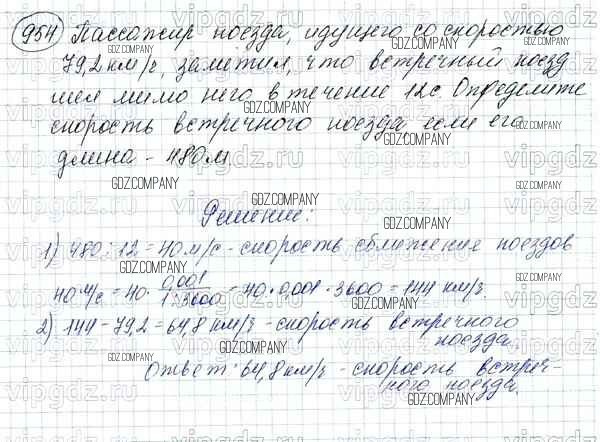 954 Пассажир поезда, идущего со скоростью
79,2 км/ч, заметил, что встречный поезд
шел мимо него в течение 12с. Определите
скорость встречного поезда, если его
длина - 480м.
Решение:
1) 480 : 12 = 40 м/с - скорость сближения поездов
40 м/с = 40 · 0,001 / 1:3600 = 40 · 0,001 · 3600 = 144 км/ч.
2) 144 - 79,2 = 64,8 км/ч - скорость встречного
поезда.
Ответ: 64,8 км/ч - скорость встреч-
ного поезда.